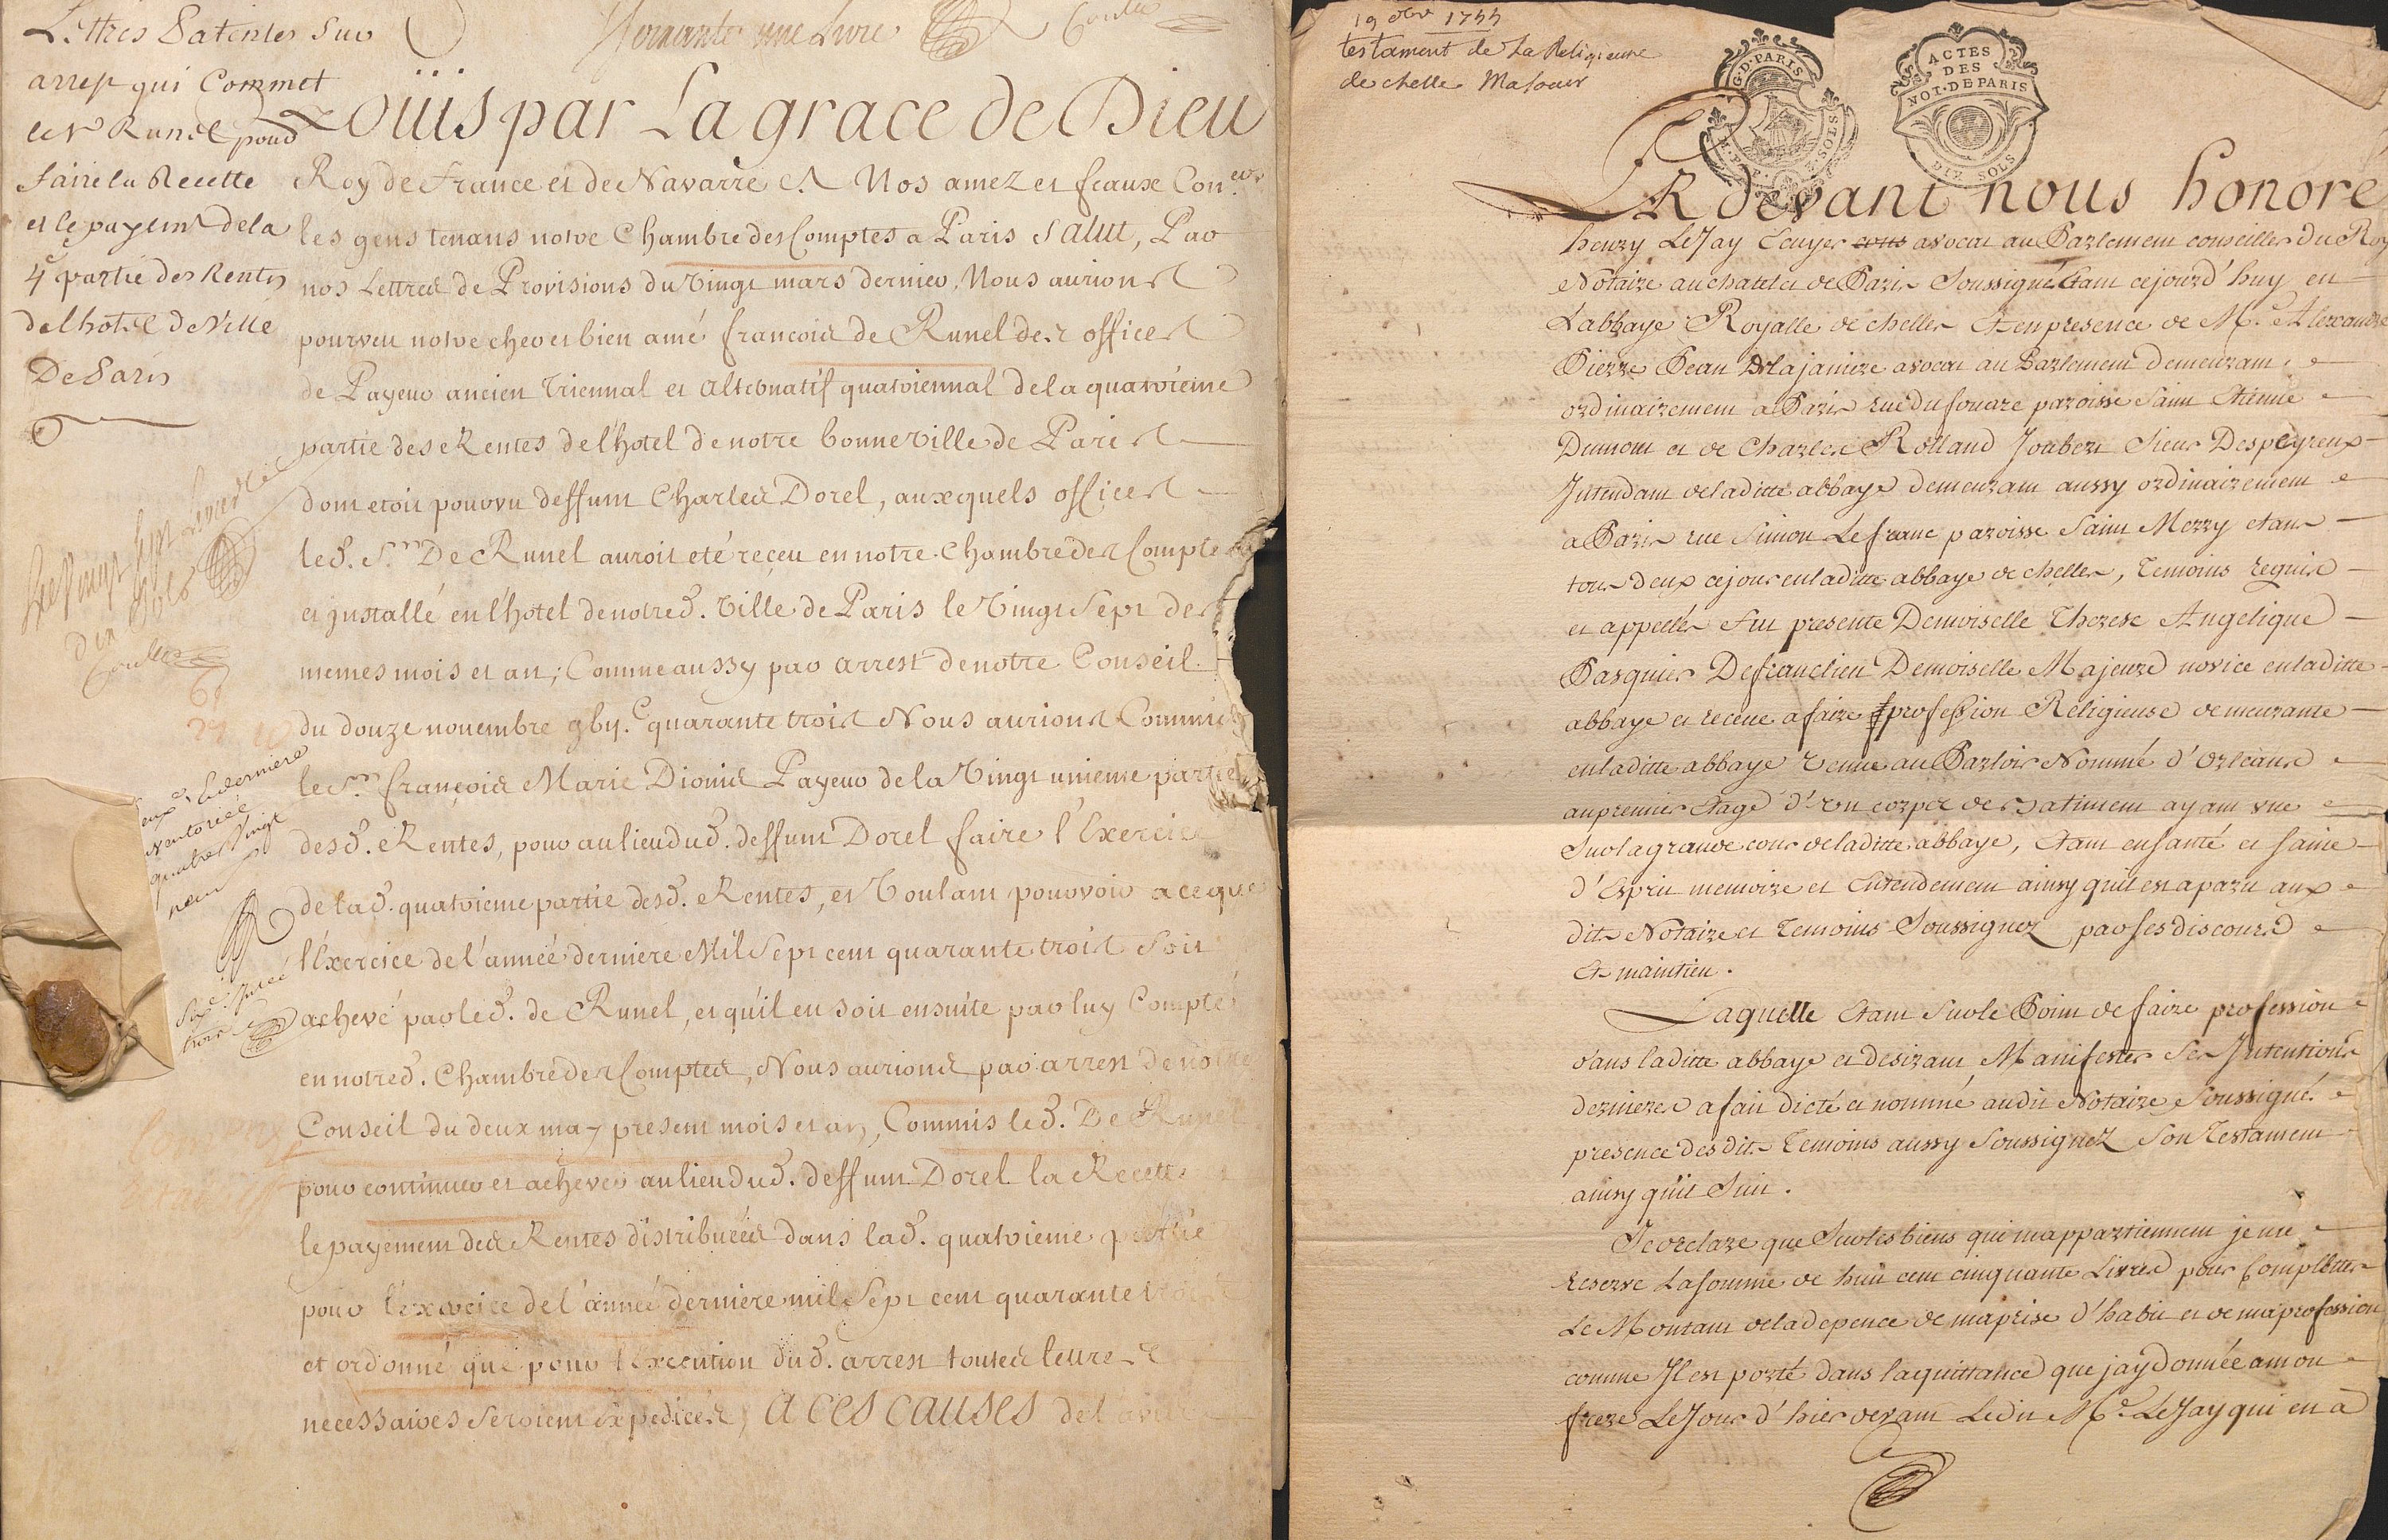 Lettres Patentes Sur
arrest qui Commet
le Sr Runel pour
faire la Recette
et le payemt de la
4e partie des Rentes
de l'hotel de Ville
De Paris
Soixante une Livre
Louis par La grace de Dieu
Roy de France et de Navarre A Nos amez et feaux Con.ers
les gens tenans notre Chambre des Comptes a Paris Salut, Par
nos Lettres de Provisions du Vingt mars dernier, Nous aurions
pourveu notre cher et bien amé françois de Runel des offices
de Payeur ancien Triennal et alternatif quatriennal de la quatrieme
partie des Rentes de l'hotel de notre bonne ville de Paris
dont etoit pourvu deffunt Charles Dorel, auxquels offices
led. Sr. De Runel auroit eté reçeu en notre Chambre des Comptes
et jnstallé en l'hotel de notred. Ville de Paris le Vingt Sept des
memes mois et an; Comme aussy par arrest de notre Conseil
du douze novembre gbij.c quarante trois Nous aurions Commis
le Sr. françois Marie Dionis Payeur de la Vingt unieme partie
desd. Rentes, pour au lieu dud. deffunt Dorel faire l'Exercice
de lad. quatrieme partie desd. Rentes, et Voulant pourvoir a ce que
l'Exercice de l'année derniere Mil Sept cent quarante trois Soit
achevé par led. de Runel, et qu'il en soit ensuite par luy Compté
en notred. Chambre des Comptes, Nous aurions par arrest de notre
Conseil du deux may present mois et an, Commis led. De Runel
pour continuer et achever au lieu dud. deffunt Dorel la Recette
le payement des Rentes distribuées dans lad. quatrieme partie
pour l'exercice de l'année derniere mil Sept cent quarante trois
et ordonné que pour l'execution dud. arrest toutes lettres
necessaires seroient expediées, A CES CAUSES de l'avis
Sept Livres
dix Sols
61
27
derniere
quatre Vingt
19 obre 1755
testament de La Religieuse
de chelle Ma soeur
G.D.PARIS
ACTES
DES
NOT.DE PARIS
DIX SOLS
PAR devant nous honoré
henry LeJay Ecuyer avocat au Parlement conseiller du Roy
Notaire au chatelet de Paris Soussigné Etant cejourd'huy en
L'abbaye Royalle de chelles Et en presence de Me. Alexandre
Pierre Jean Delajaniere avocat au Parlement demeurant
ordinairement a Paris rue du fouare paroisse Saint Etienne
Dumont et de Charles Rolland Joubert Sieur Despeyreux
Intendant de laditte abbaye demeurant aussy ordinairement
a Paris rue Simon Lefranc paroisse Saint Merry etans
tous deux cejour en laditte abbaye de chelles, Temoins requis
et appellés Fut presente Demoiselle Therese Angelique
Pasquier Defranclieu Demoiselle Majeure novice en laditte
abbaye et receue a faire profession Religieuse demeurante
en laditte abbaye Venue au Parloir Nommé d'Orleans
au premier Etage d'un corps de Batiment ayant vue
Sur la grande cour de laditte abbaye, Etant en santé et saine
d'Esprit memoire et Entendement ainsy qu'il est aparu aux
dits Notaire et Temoins Soussignez par ses discours
Et maintien.
Laquelle Etant Sur le Point de faire profession
dans laditte abbaye et desirant Manifester Ses Intentions
dernieres a fait dicté et nommé audit Notaire Soussigné
presence desdits Temoins aussy Soussignez Son Testament
ainsy qu'il Suit.
Je declare que Sur les biens qui m'appartiennent je me
reserve La somme de huit cent cinquante Livres pour Completter
Le Montant de la depence de ma prise d'habit et de ma profession
comme Il est porté dans la quittance que jay donnée a mon
frere Le Jour d'hier devant Ledit Me. LeJay qui en a